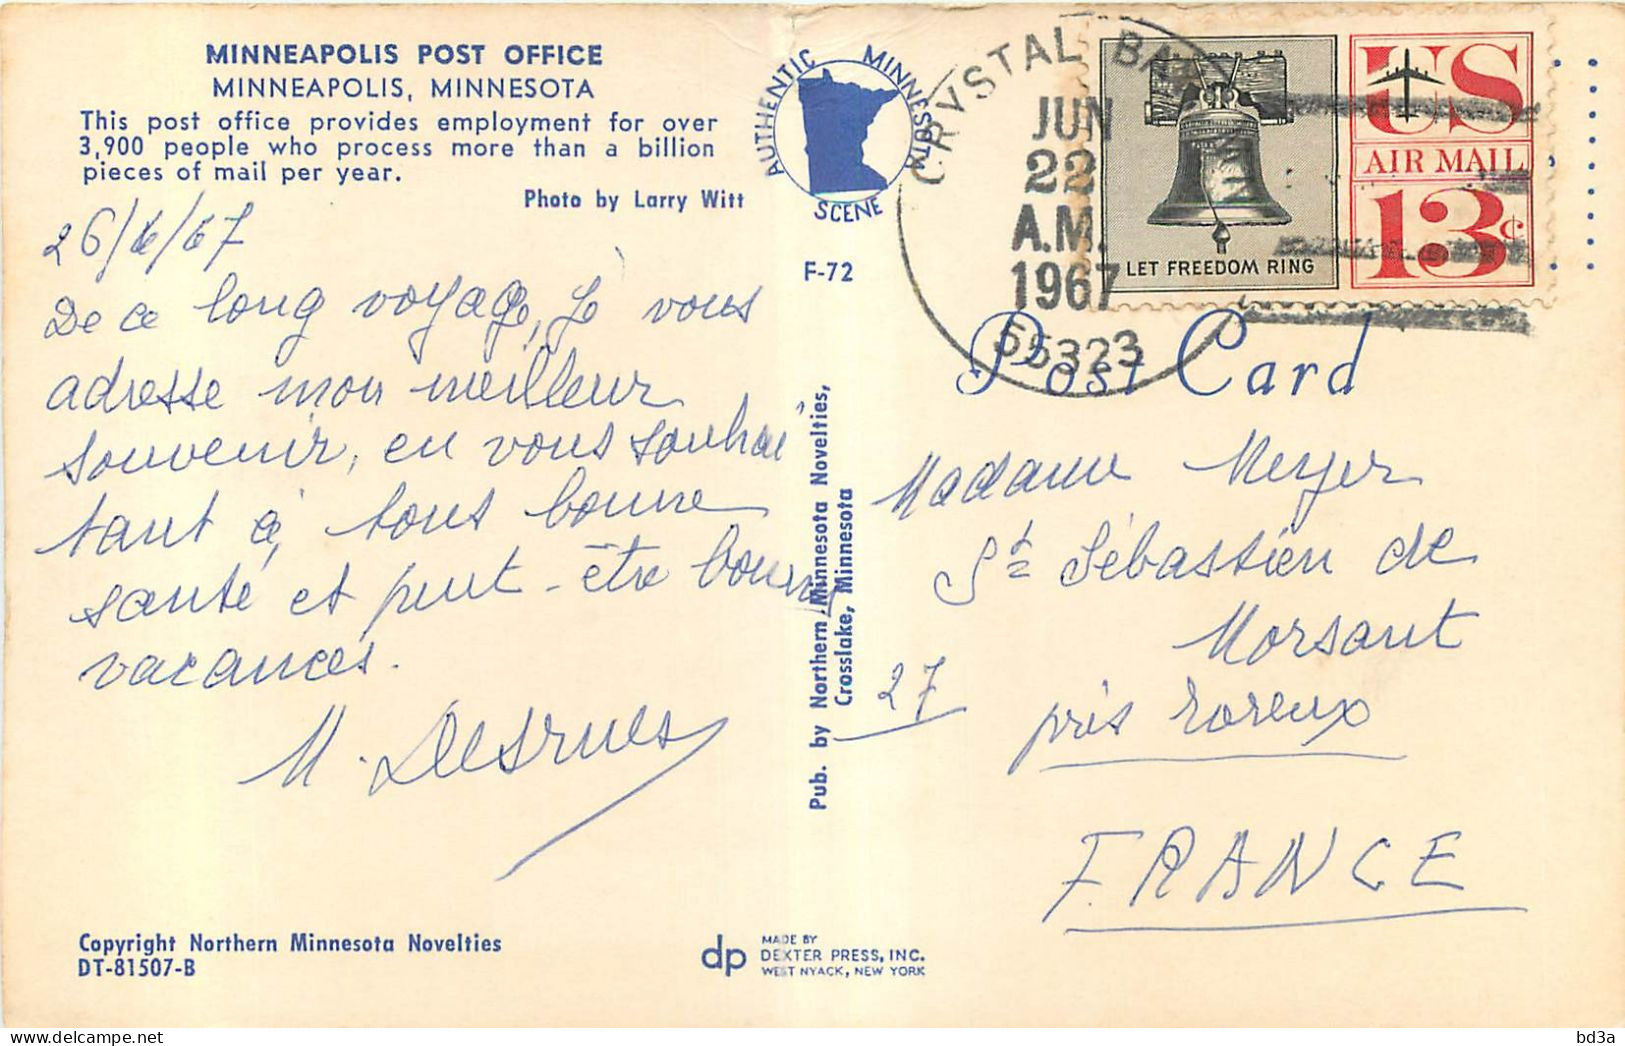 MINNEAPOLIS POST OFFICE
MINNEAPOLIS, MINNESOTA
This post office provides employment for over
3,900 people who process more than a billion
pieces of mail per year.
Photo by Larry Witt
AUTHENTIC MINNESOTA
SCENE
F-72
26/6/67
De ce long voyage, je vous
adresse mon meilleur
souvenir, en vous souhai
tant à tous bonne
santé et peut-être bonnes
vacances.
M. Desrues
Copyright Northern Minnesota Novelties
DT-81507-B
Pub. by Northern Minnesota Novelties,
Crosslake, Minnesota
dp
MADE BY
DEXTER PRESS, INC.
WEST NYACK, NEW YORK
CRYSTAL BAY MINN
JUN
22
A.M.
1967
55323
LET FREEDOM RING
US
AIR MAIL
13¢
Post Card
Madame Meyer
St Sébastien de
Morsent
27
près Evreux
FRANCE
bd3a